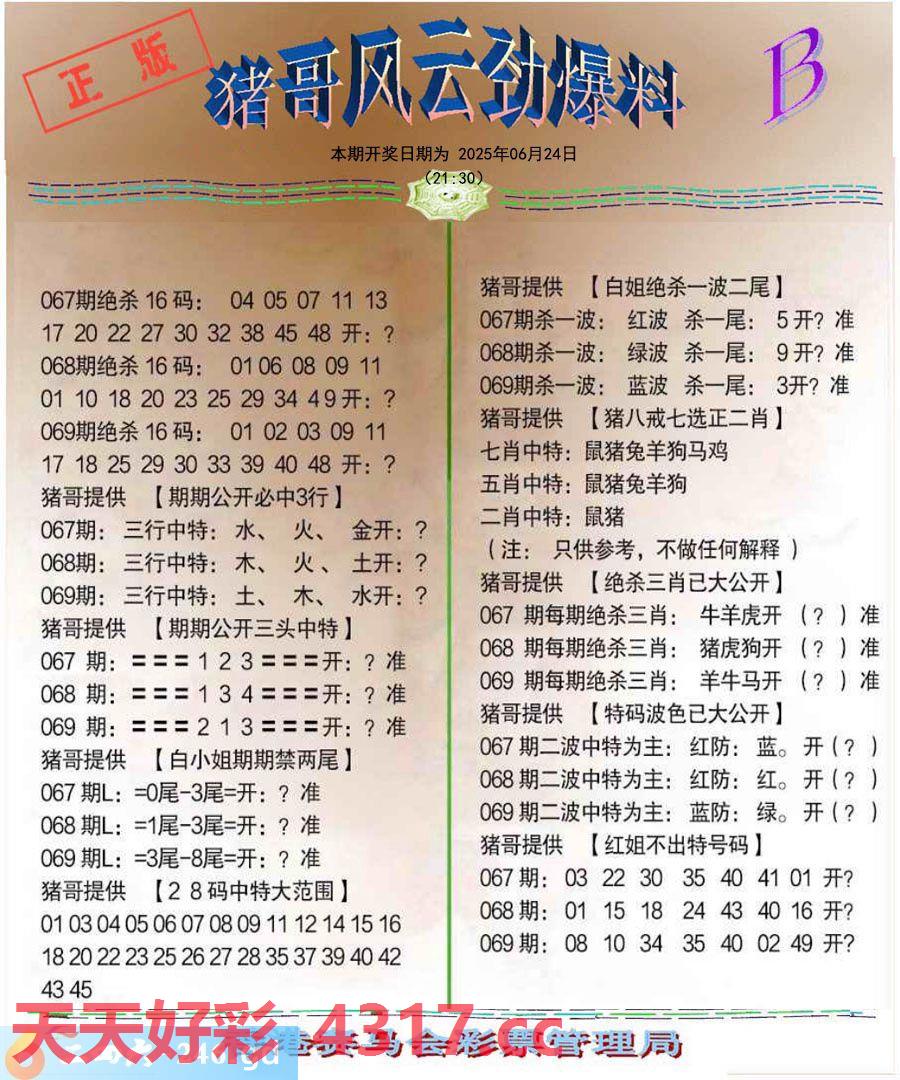 正版
猪哥风云劲爆料
B
本期开奖日期为 2025年06月24日
(21:30)
067期绝杀16码： 04 05 07 11 13
17 20 22 27 30 32 38 45 48 开：？
068期绝杀16码： 01 06 08 09 11
01 10 18 20 23 25 29 34 49 开：？
069期绝杀16码： 01 02 03 09 11
17 18 25 29 30 33 39 40 48 开：？
猪哥提供 【期期公开必中3行】
067期：三行中特：水、 火、 金开：？
068期：三行中特：木、 火、 土开：？
069期：三行中特：土、 木、 水开：？
猪哥提供 【期期公开三头中特】
067 期：＝＝＝1 2 3＝＝＝开：？准
068 期：＝＝＝1 3 4＝＝＝开：？准
069 期：＝＝＝2 1 3＝＝＝开：？准
猪哥提供 【白小姐期期禁两尾】
067 期L：=0尾-3尾=开：？准
068 期L：=1尾-3尾=开：？准
069 期L：=3尾-8尾=开：？准
猪哥提供 【28码中特大范围】
01 03 04 05 06 07 08 09 11 12 14 15 16
18 20 22 23 25 26 27 28 35 37 39 40 42
43 45
猪哥提供 【白姐绝杀一波二尾】
067期杀一波： 红波 杀一尾： 5开？准
068期杀一波： 绿波 杀一尾： 9开？准
069期杀一波： 蓝波 杀一尾： 3开？准
猪哥提供 【猪八戒七选正二肖】
七肖中特：鼠猪兔羊狗马鸡
五肖中特：鼠猪兔羊狗
二肖中特：鼠猪
（注： 只供参考，不做任何解释）
猪哥提供 【绝杀三肖已大公开】
067 期每期绝杀三肖： 牛羊虎开 （？）准
068 期每期绝杀三肖： 猪虎狗开 （？）准
069 期每期绝杀三肖： 羊牛马开 （？）准
猪哥提供 【特码波色已大公开】
067 期二波中特为主：红防：蓝。开（？）
068 期二波中特为主：红防：红。开（？）
069 期二波中特为主：蓝防：绿。开（？）
猪哥提供 【红姐不出特号码】
067 期： 03 22 30 35 40 41 01 开？
068 期： 01 15 18 24 43 40 16 开？
069 期： 08 10 34 35 40 02 49 开？
天天好彩 4317.cc
港赛马会彩票管理局